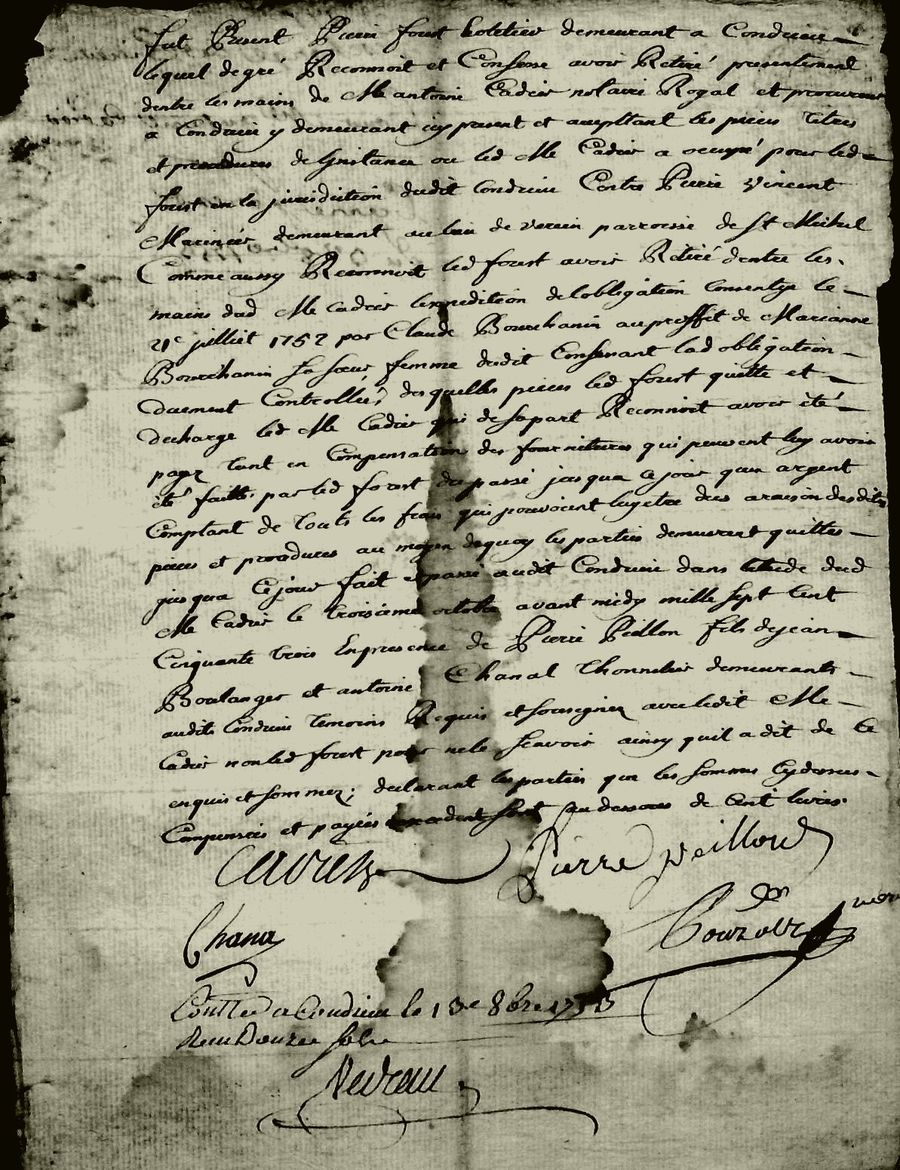 fut Present Pierre forest hotelier demeurant a Condrieu
lequel de gré Reconnoit et Confesse avoir Retiré presentement
dentre les mains de Me antoine Cadier notaire Royal et procureur
a Condrieu y demeurant icy present et acceptant les pieces titres
et procedures de Linstance ou led Me Cadier a occupé pour led
forest en la jurisdiction dudit Condrieu Contre Pierre Vincent
Marinier demeurant au lieu de verin parroisse de St Michel
Comme aussy Reconnoit led forest avoir Retiré dentre les
mains dud Me Cadier lexpedition de lobligation Consentye le
21e juilliet 1752 par Claude Bourchanin au proffit de Marianne
Bourchanin sa soeur femme dudit Confessant lad obligation
duement Controllée, desquelles pieces led forest quitte et
decharge led Me Cadier qui de sa part Reconnoit avoir été
payé tant en Compensation des fournitures qui peuvent luy avoir
été faittes par led forest du passé jusqua Ce jour quen argent
Comptant de touts les frais qui pouvoient luy etre dus araison desdits
pieces et procedures au moyen dequoy les parties demeurent quittes
jusqua Ce jour fait et passé audit Condrieu dans letude dud
Me Cadier le troisieme octobre avant midy mille sept Cent
Cinquante trois En presence de Pierre Peillon fils de jean
Boulanger et antoine Chanal thonnelier demeurants
audit Condrieu temoins Requis et soussignez avec ledit Me
Cadier non led forest pour ne le scavoir ainsy quil a dit de Ce
enquis et sommez; declarant les parties que les sommes Cydessus
Compensées et payées sont au dessous de Cent livres
Cadier Pierre peillond
Chanal
Contlle a Condrieu le 13e 8bre 1753
Recu Douze sols